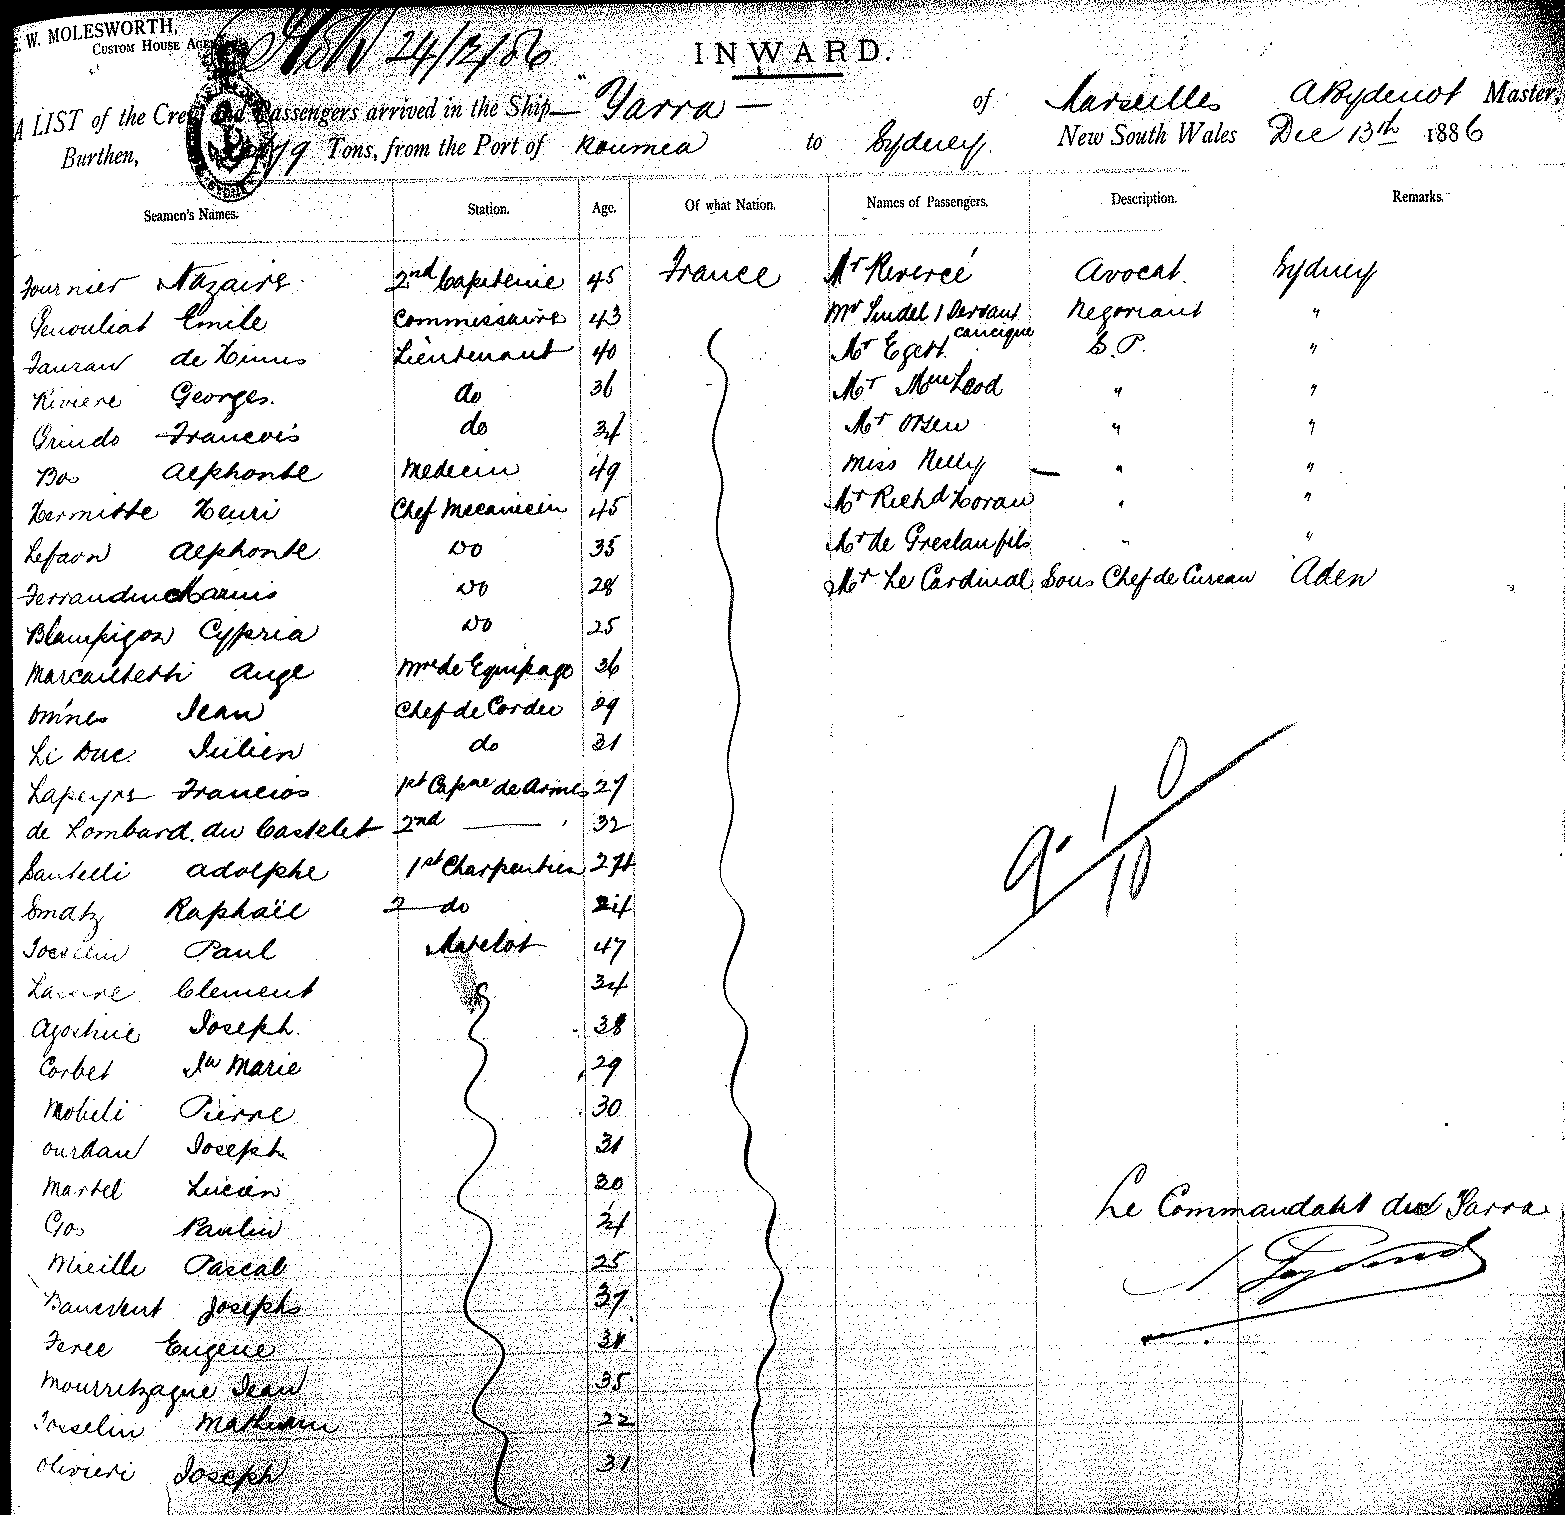 W. MOLESWORTH,
CUSTOM HOUSE AGE
24/12/86
INWARD.
A LIST of the Crew and Passengers arrived in the Ship— "Yarra — of Marseilles A Boydenot Master,
Burthen, Tons, from the Port of Noumea to Sydney. New South Wales Dec 13th 1886
Seamen's Names. Station. Age. Of what Nation. Names of Passengers. Description. Remarks.
Fournier Nazaire 2nd Capitenie 45 France Mr Rivercé Avocat. Sydney
Genouliat Emile Commissaire 43 Mr Lindel 1 Servant Negoriant "
canaque
Fauran de Himis Lieutenant 40 Mr Egert S.P. "
Riviere Georges. do 36 Mr MacLeod " "
Grindo Francois do 34 Mr Olsen " "
Bos Alphonte Medecin 49 Miss Nelly — " "
Hermitte Henri Chef Mecanicien 45 Mr Richd Horan " "
Lefaon Alphonte Do 35 Mr de Greslan fils " "
Ferrandin Marius Do 28 Mr Le Cardinal Sous Chef de Bureau Aden
Blampigon Cypria Do 25
Marcantetti Ange Mre de Equipage 36
Omnes Jean Chef de Corder 29
Li Duc Julien do 31
Lapeyre Francios 1st Capne de Armes 27
de Lombard du Castelet 2nd —— 32
Santelli Adolphe 1st Charpentien 27
Smatz Raphaël 2 — do 24
Josselin Paul Matelot 47
Clement 34
Agostine Joseph. 38
Corbet Jn Marie 29
Mobili Pierre 30
ourdan Joseph 31
Martel Lucien 30
Gos Paulin 24
Mieille Pascal 25
Banevent Josephs 37
Feree Eugene 31
Mourretzague Jean 35
Josselin Mathurin 22
Olivieri Joseph 31
9. 1 0
10
Le Commandant du Yarra